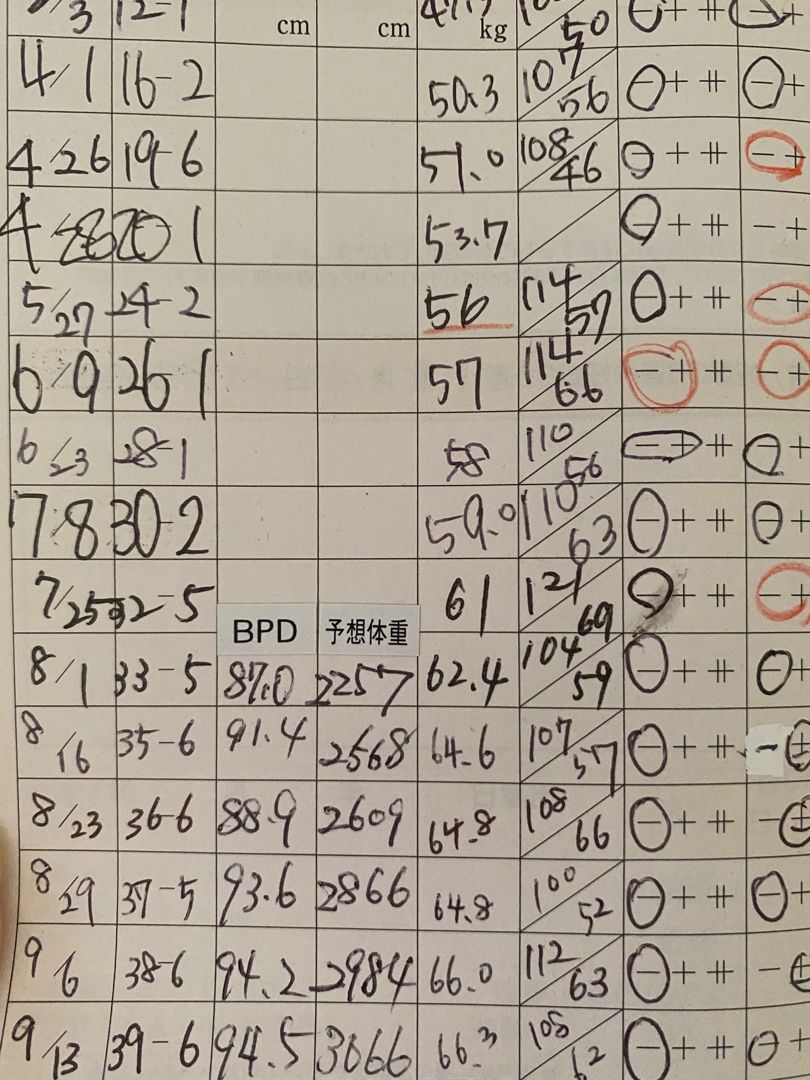 12-1 cm cm kg 50
4/1 16-2 50.3 107/56 - + ++ - +
4/26 19-6 51.0 108/46 - + ++ - +
4/28 20 1 53.7 - + ++ - +
5/27 24-2 56 114/57 - + ++ - +
6/9 26 1 57 114/66 - + ++ - +
6/23 28-1 58 110/56 - + ++ - +
7/8 30-2 59.0 110/63 - + ++ - +
7/25 32-5 61 121/69 - + ++ - +
BPD 予想体重
8/1 33-5 87.0 2257 62.4 104/59 - + ++ - +
8/16 35-6 91.4 2568 64.6 107/57 - + ++ - ±
8/23 36-6 88.9 2609 64.8 108/66 - + ++ - ±
8/29 37-5 93.6 2866 64.8 100/52 - + ++ - +
9/6 38-6 94.2 2984 66.0 112/63 - + ++ - ±
9/13 39-6 94.5 3066 66.3 108/62 - + ++ - +